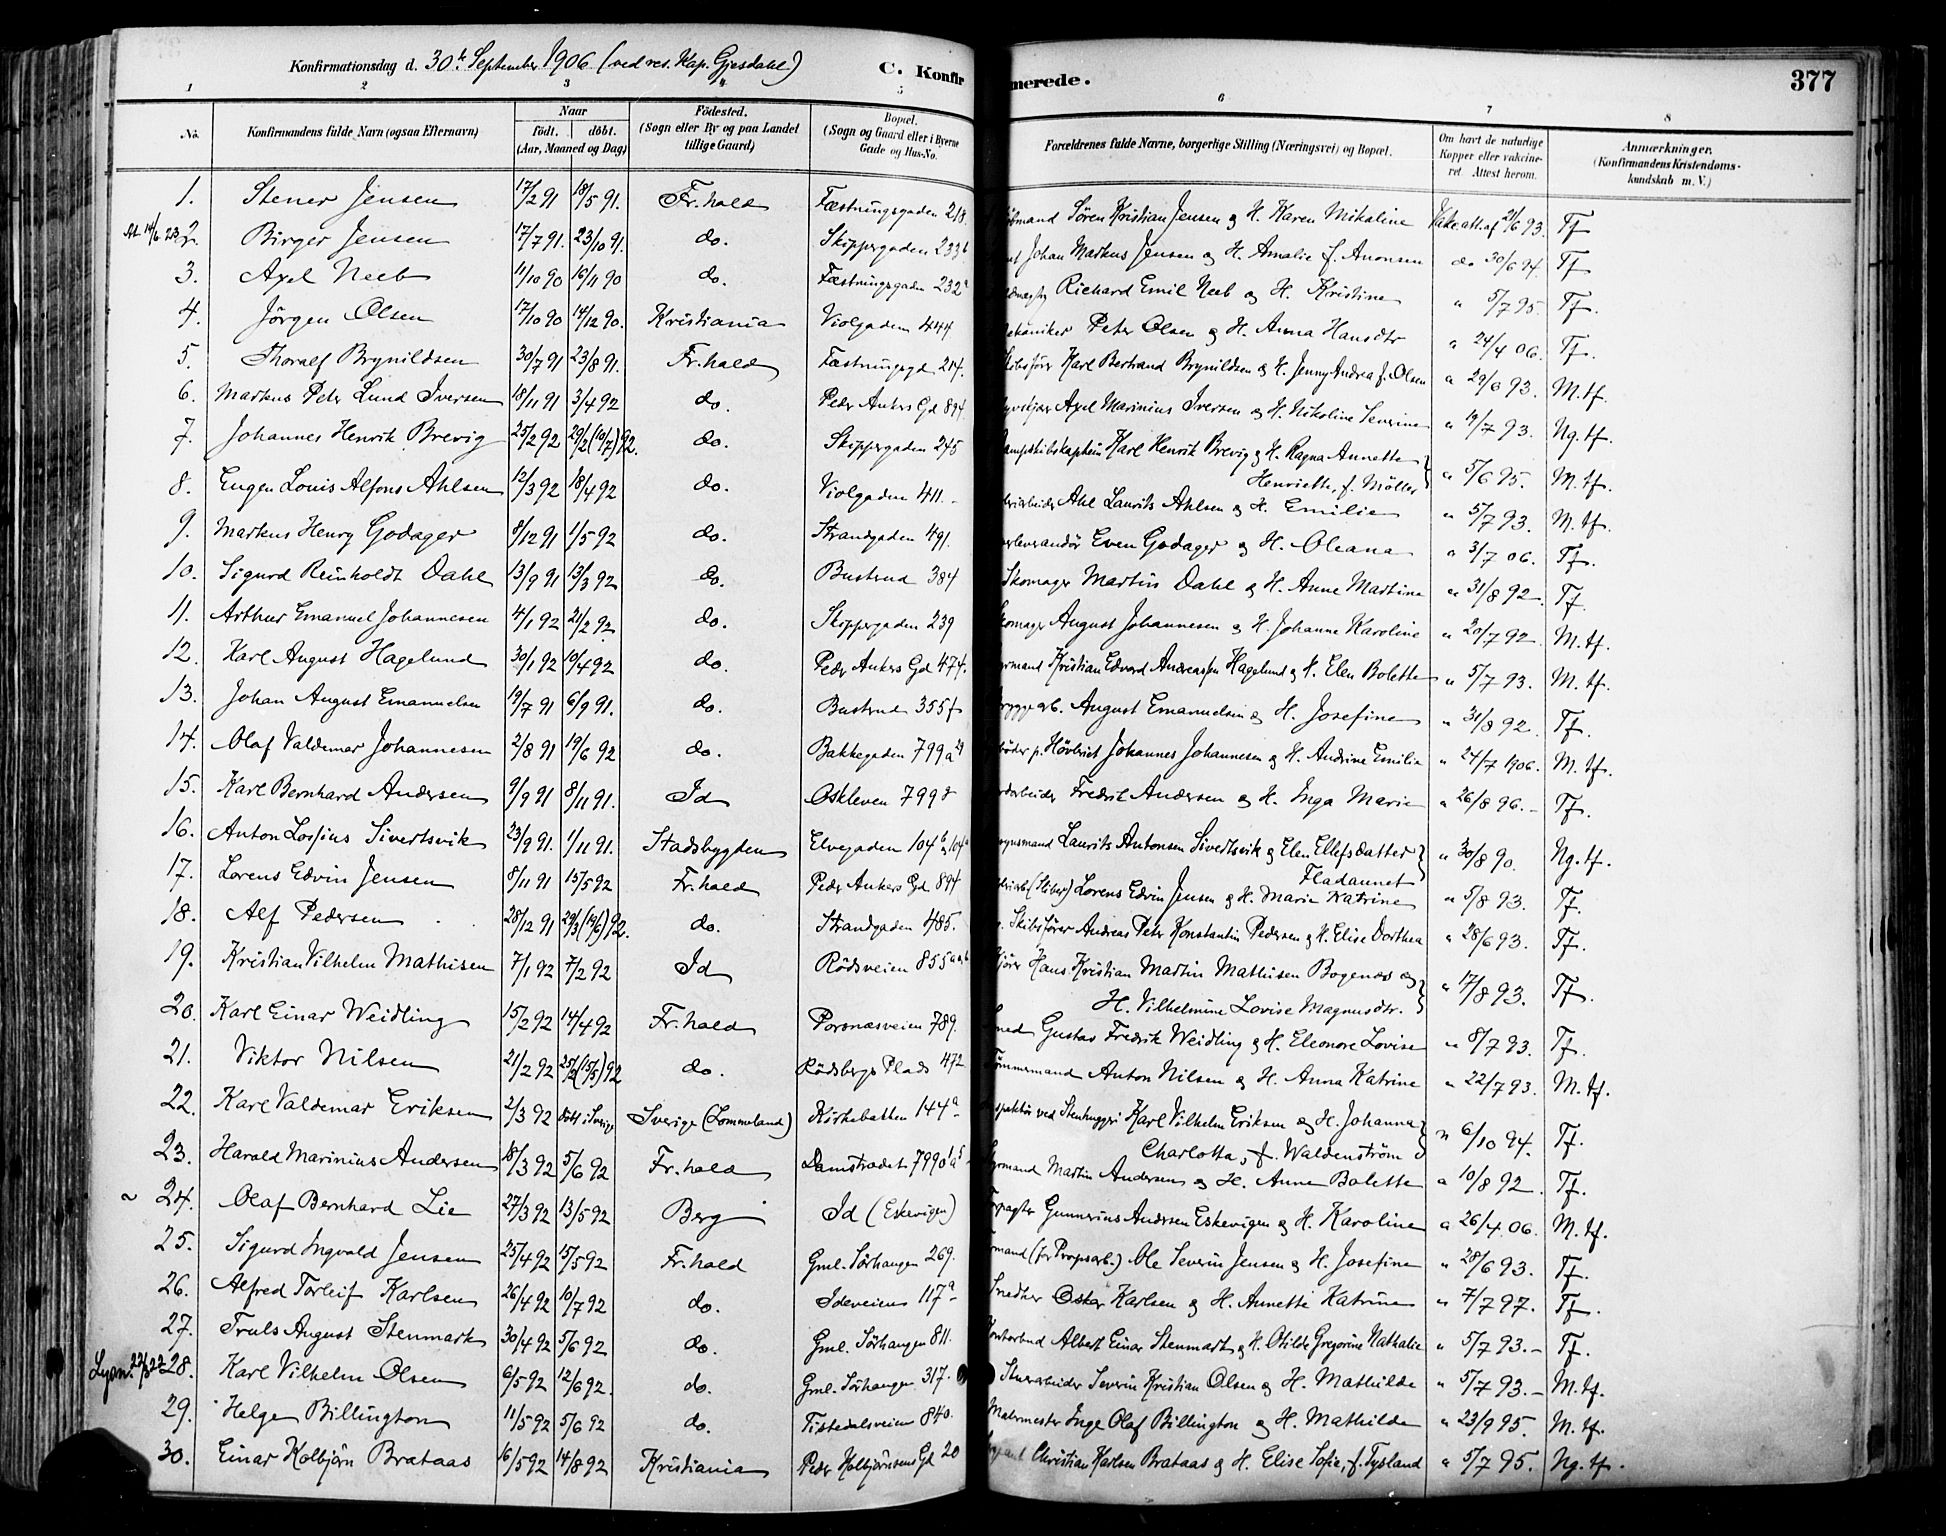 Konfirmationsdag d. 30te September 1906 (ved res. Kap. Gjesdahl) C. Konfir merede. 377
1 2 3 4 5 6 7 8
No. Konfirmandens fulde Navn (ogsaa Efternavn) Naar födt. döbt. (Aar, Maaned og Dag) Födested. (Sogn eller By og paa Landet tillige Gaard) Bopæl. (Sogn og Gaard eller i Byerne Gade og Hus-No. Forældrenes fulde Navne, borgerlige Stilling (Næringsvei) og Bopæl. Om havt de naturlige Kopper eller vakcineret. Attest herom. Anmærkninger. (Konfirmandens Kristendomskundskab m. V.)
1. Stener Jensen 17/2 91 18/5 91. Fr.hald Fæstningsgaden 218 Søren Kristian Jensen & H. Karen Mikaline Vakc. att. af 21/6 93. Tf
2. Birger Jensen 17/7 91. 23/10 91. do. Skippergaden 233b Johan Markus Jensen & H. Amalie f. Anonsen do 30/6 94. Tf
3. Axel Neeb 11/10 90 16/11 90 do. Fæstningsgaden 232a Richard Emil Neeb & H. Kristine " 5/7 95. Tf.
4. Jörgen Olsen 17/10 90 14/12 90. Kristiania Violgaden 444 Peter Olsen & H. Anna Hansdtr " 24/4 06. Tf.
5. Thoralf Brynildsen 30/7 91 23/8 91. Fr.hald Fæstningsgd 214. Karl Bertrand Brynildsen & H. Jenny Andrea f. Olsen " 29/6 93. M.tf.
6. Markus Peter Lund Iversen 18/11 91 3/4 92 do. Peder Ankers Gd 894 Axel Marinius Iversen & H. Nikoline Severine " 19/7 93. Ng. tf.
7. Johannes Henrik Brevig 25/2 92 29/2 (10/7) 92. do. Skippergaden 245 Karl Henrik Brevig & H. Ragna Annette Henriette, f. Møller " 5/6 95. M. tf.
8. Eugen Louis Alfons Ahlsen 12/3 92 18/4 92 do. Violgaden 411. Ahl Laurits Ahlsen & H. Emilie " 5/7 93. M. tf.
9. Markus Henry Godager 8/12 91 1/5 92 do. Strandgaden 491. Even Godager & H. Oleana " 3/7 06. Tf.
10. Sigurd Reinholdt Dahl 13/9 91 13/3 92 do. Busterud 384 Skomager Martin Dahl & H. Anne Martine " 31/8 92. Tf.
11. Arthur Emanuel Johannesen 4/1 92 21/2 92 do. Skippergaden 239 August Johannesen & H. Johanne Karoline " 20/7 92. M. tf.
12. Karl August Hagelund 30/1 92 10/4 92 do. Peder Ankers Gd 474. Kristian Edvard Andreassen Hagelund & H. Elen Bolette " 5/7 93. M. tf.
13. Johan August Emanuelsen 19/7 91 6/9 91. do. Busterud 355f August Emanuelsen & H. Josefine " 31/8 92. Tf.
14. Olaf Valdemar Johannesen 2/8 91 19/6 92 do. Bakkegaden 799a Johannes Johannesen & H. Andrine Emilie " 24/7 1906. M. tf.
15. Karl Bernhard Andersen 9/9 91 8/11 91. Id Oskleven 799 Fredrik Andersen & H. Inga Marie " 26/8 96. Tf.
16. Anton Lossius Sivertsvik 23/9 91. 1/11 91. Stadsbygden Elvegaden 104 Laurits Antonsen Sivertsvik & Elen Ellefsdatter Fladaunet " 30/8 90. Ng. tf.
17. Lorens Edvin Jensen 8/11 91 15/5 92 Fr.hald Peder Ankers Gd 894 Lorens Edvin Jensen & H. Marie Katrine " 5/8 93. Tf.
18. Alf Pedersen 28/12 91 29/3 (19/6) 92. do. Strandgaden 485. Skibsfører Andreas Peter Konstantin Pedersen & H. Elise Dorthea " 28/6 93. Tf.
19. Kristian Vilhelm Mathisen 7/1 92 7/2 92 Id Rödsveien 855 Hans Kristian Martin Mathisen Bogenæs & H. Vilhelmine Lovise Magnusdtr. " 17/8 93. Tf.
20. Karl Einar Weidling 15/2 92 14/4 92 Fr.hald Porsnæsveien 789. Gustav Fredrik Weidling & H. Eleonore Lovise " 8/7 93. Tf.
21. Viktor Nilsen 21/2 92 25/2 (15/5) 92 do. Rödsbergs Plads 472 Tömmermand Anton Nilsen & H. Anna Katrine " 22/7 93. M. tf.
22. Karl Valdemar Eriksen 2/3 92 döbt i Sverige Sverige (Lommeland) Kirkebakken 144a ved Stenhuggeri Karl Vilhelm Eriksen & H. Johanna Charlotta, f. Waldenström " 6/10 94. Tf.
23. Harald Marinius Andersen 18/3 92 5/6 92 Fr.hald Damstrædet 799 Martin Andersen & H. Anne Bolette " 10/8 92. Tf.
24. Olaf Bernhard Lie 27/3 92 13/5 92 Berg Id (Eskevigen) Forpagter Gunnerius Andersen Eskevigen & H. Karoline " 26/4 06. M. tf.
25. Sigurd Ingvald Jensen 25/4 92 15/5 92 Fr.hald Gml. Sörhaugen 269. Ole Severin Jensen & H. Josefine " 28/6 93. Tf.
26. Alfred Torleif Karlsen 26/4 92 10/7 92 do. Ideveien 117a Snedker Oskar Karlsen & H. Annette Katrine " 7/7 97. Tf.
27. Truls August Stenmark 30/4 92 5/6 92 do. Gml. Sörhaugen 811. Kontorbud Albert Einar Stenmark & H. Otilde Gregorine Nathalie " 5/7 93. Tf.
28. Karl Vilhelm Olsen 6/5 92 12/6 92. do. Gml. Sörhaugen 317. Stenarbeider Severin Kristian Olsen & H. Mathilde " 5/7 93. M. tf.
29. Helge Billington 11/5 92 5/6 92 do. Tistedalsveien 840. Malermester Inge Olaf Billington & H. Mathilde " 23/9 95. M. tf.
30. Einar Kolbjörn Brataas 16/5 92 14/8 92 Kristiania Peder Kolbjörnsens Gd 20 Christian Karlsen Brataas & H. Elise Sofie, f. Tysland " 5/7 95. Ng. tf.